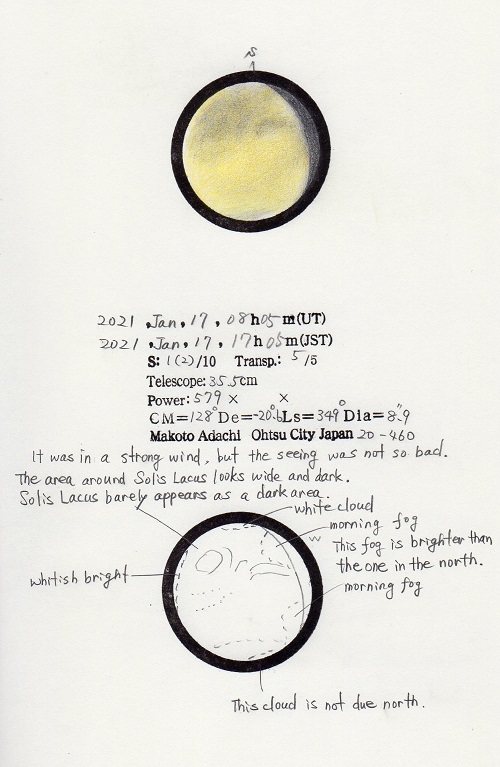 S
2021 . Jan, 17, 08h05m(UT)
2021 . Jan, 17, 17h05m(JST)
S: 1(2)/10 Transp.: 5/5
Telescope: 35.5cm
Power: 579 × ×
CM=128° De=-20.6° Ls=349° Dia=8.″9
Makoto Adachi Ohtsu City Japan 20-460
It was in a strong wind, but the seeing was not so bad.
The area around Solis Lacus looks wide and dark.
Solis Lacus barely appears as a dark area.
white cloud
morning fog
W
This fog is brighter than
the one in the north.
whitish bright
morning fog
This cloud is not due north.